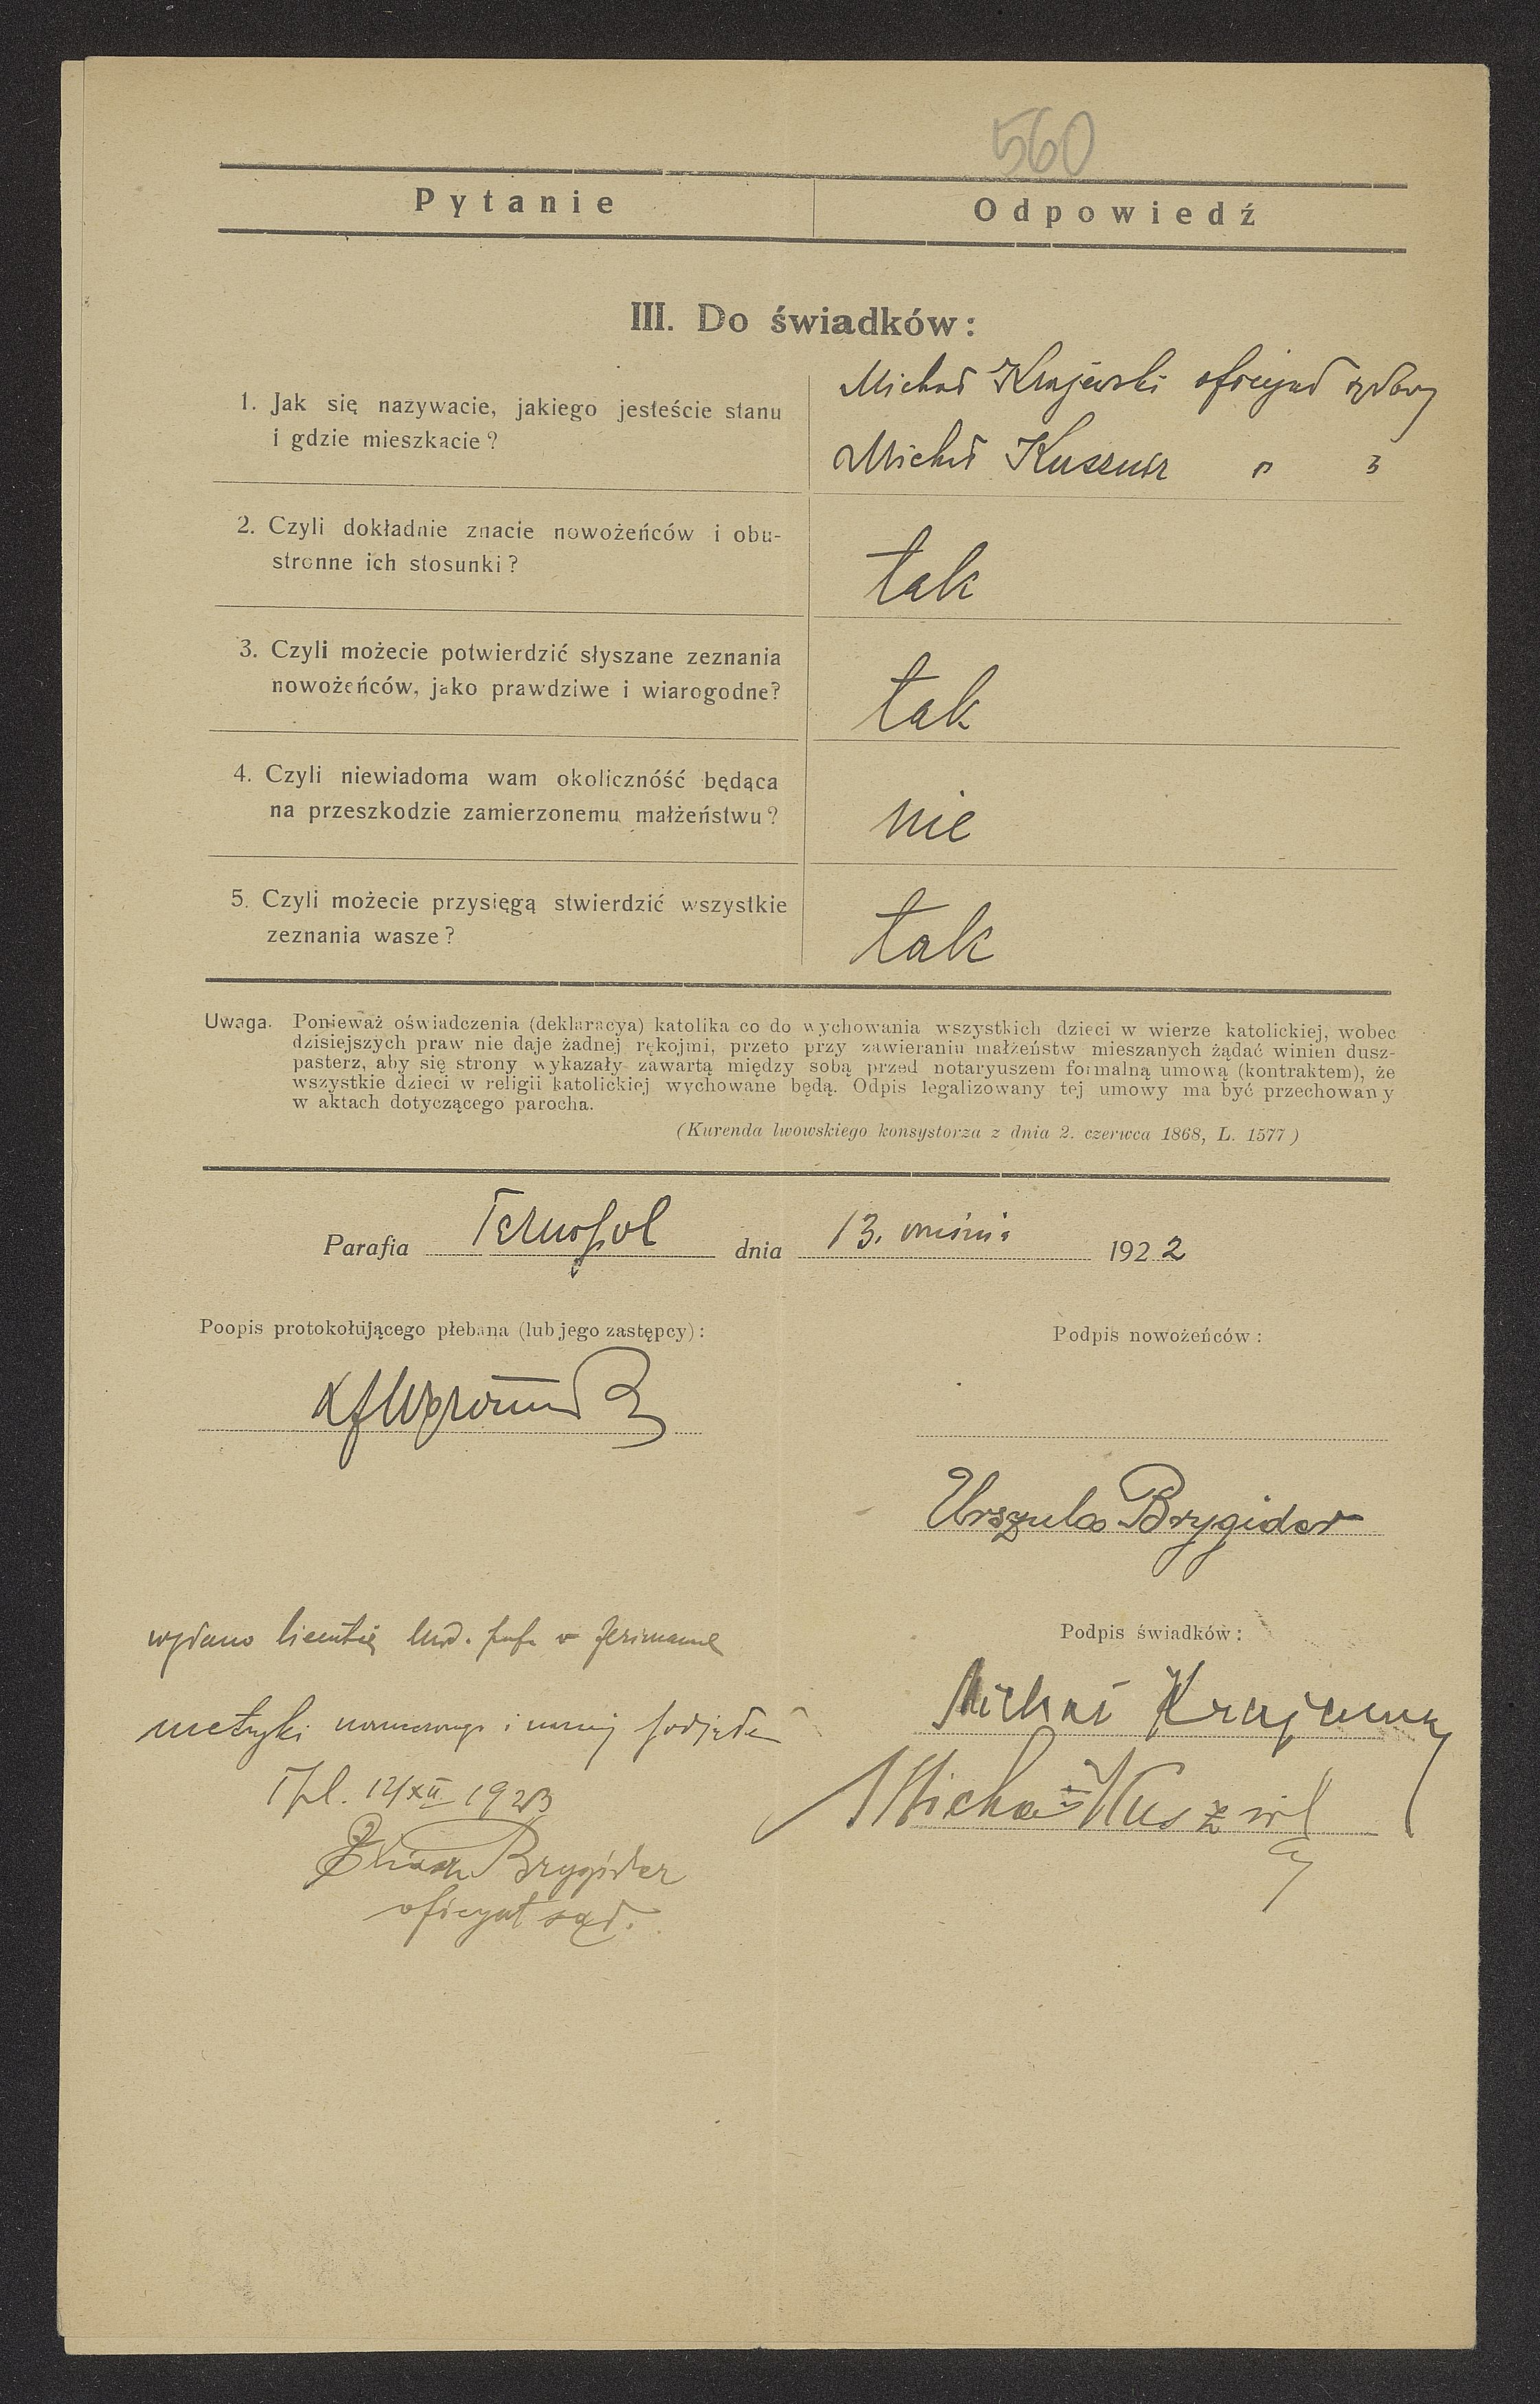 560
Pytanie
Odpowiedź
III. Do świadków:
1. Jak się nazywacie, jakiego jesteście stanu
i gdzie mieszkacie?
Michał Krajewski oficyał sądowy
Michał Kusznir " "
2. Czyli dokładnie znacie nowożeńców i obu-
stronne ich stosunki?
tak
3. Czyli możecie potwierdzić słyszane zeznania
nowożeńców, jako prawdziwe i wiarogodne?
tak
4. Czyli niewiadoma wam okoliczność będąca
na przeszkodzie zamierzonemu małżeństwu?
nie
5. Czyli możecie przysięgą stwierdzić wszystkie
zeznania wasze?
tak
Uwaga. Ponieważ oświadczenia (deklaracya) katolika co do wychowania wszystkich dzieci w wierze katolickiej, wobec
dzisiejszych praw nie daje żadnej rękojmi, przeto przy zawieraniu małżeństw mieszanych żądać winien dusz-
pasterz, aby się strony wykazały zawartą między sobą przed notaryuszem formalną umową (kontraktem), że
wszystkie dzieci w religii katolickiej wychowane będą. Odpis legalizowany tej umowy ma być przechowany
w aktach dotyczącego parocha.
(Kurenda lwowskiego konsystorza z dnia 2. czerwca 1868, L. 1577)
Parafia Ternopol dnia 13. września 1922
Poopis protokołującego plebana (lub jego zastępcy):
Podpis nowożeńców:
Urszula Brygider
wydano licentię
Podpis świadków:
Michał
metryki i podjąłem
Michał Kusznir
Tpl. 12/XII 1923
Eliasz Brygider
oficyał sąd.